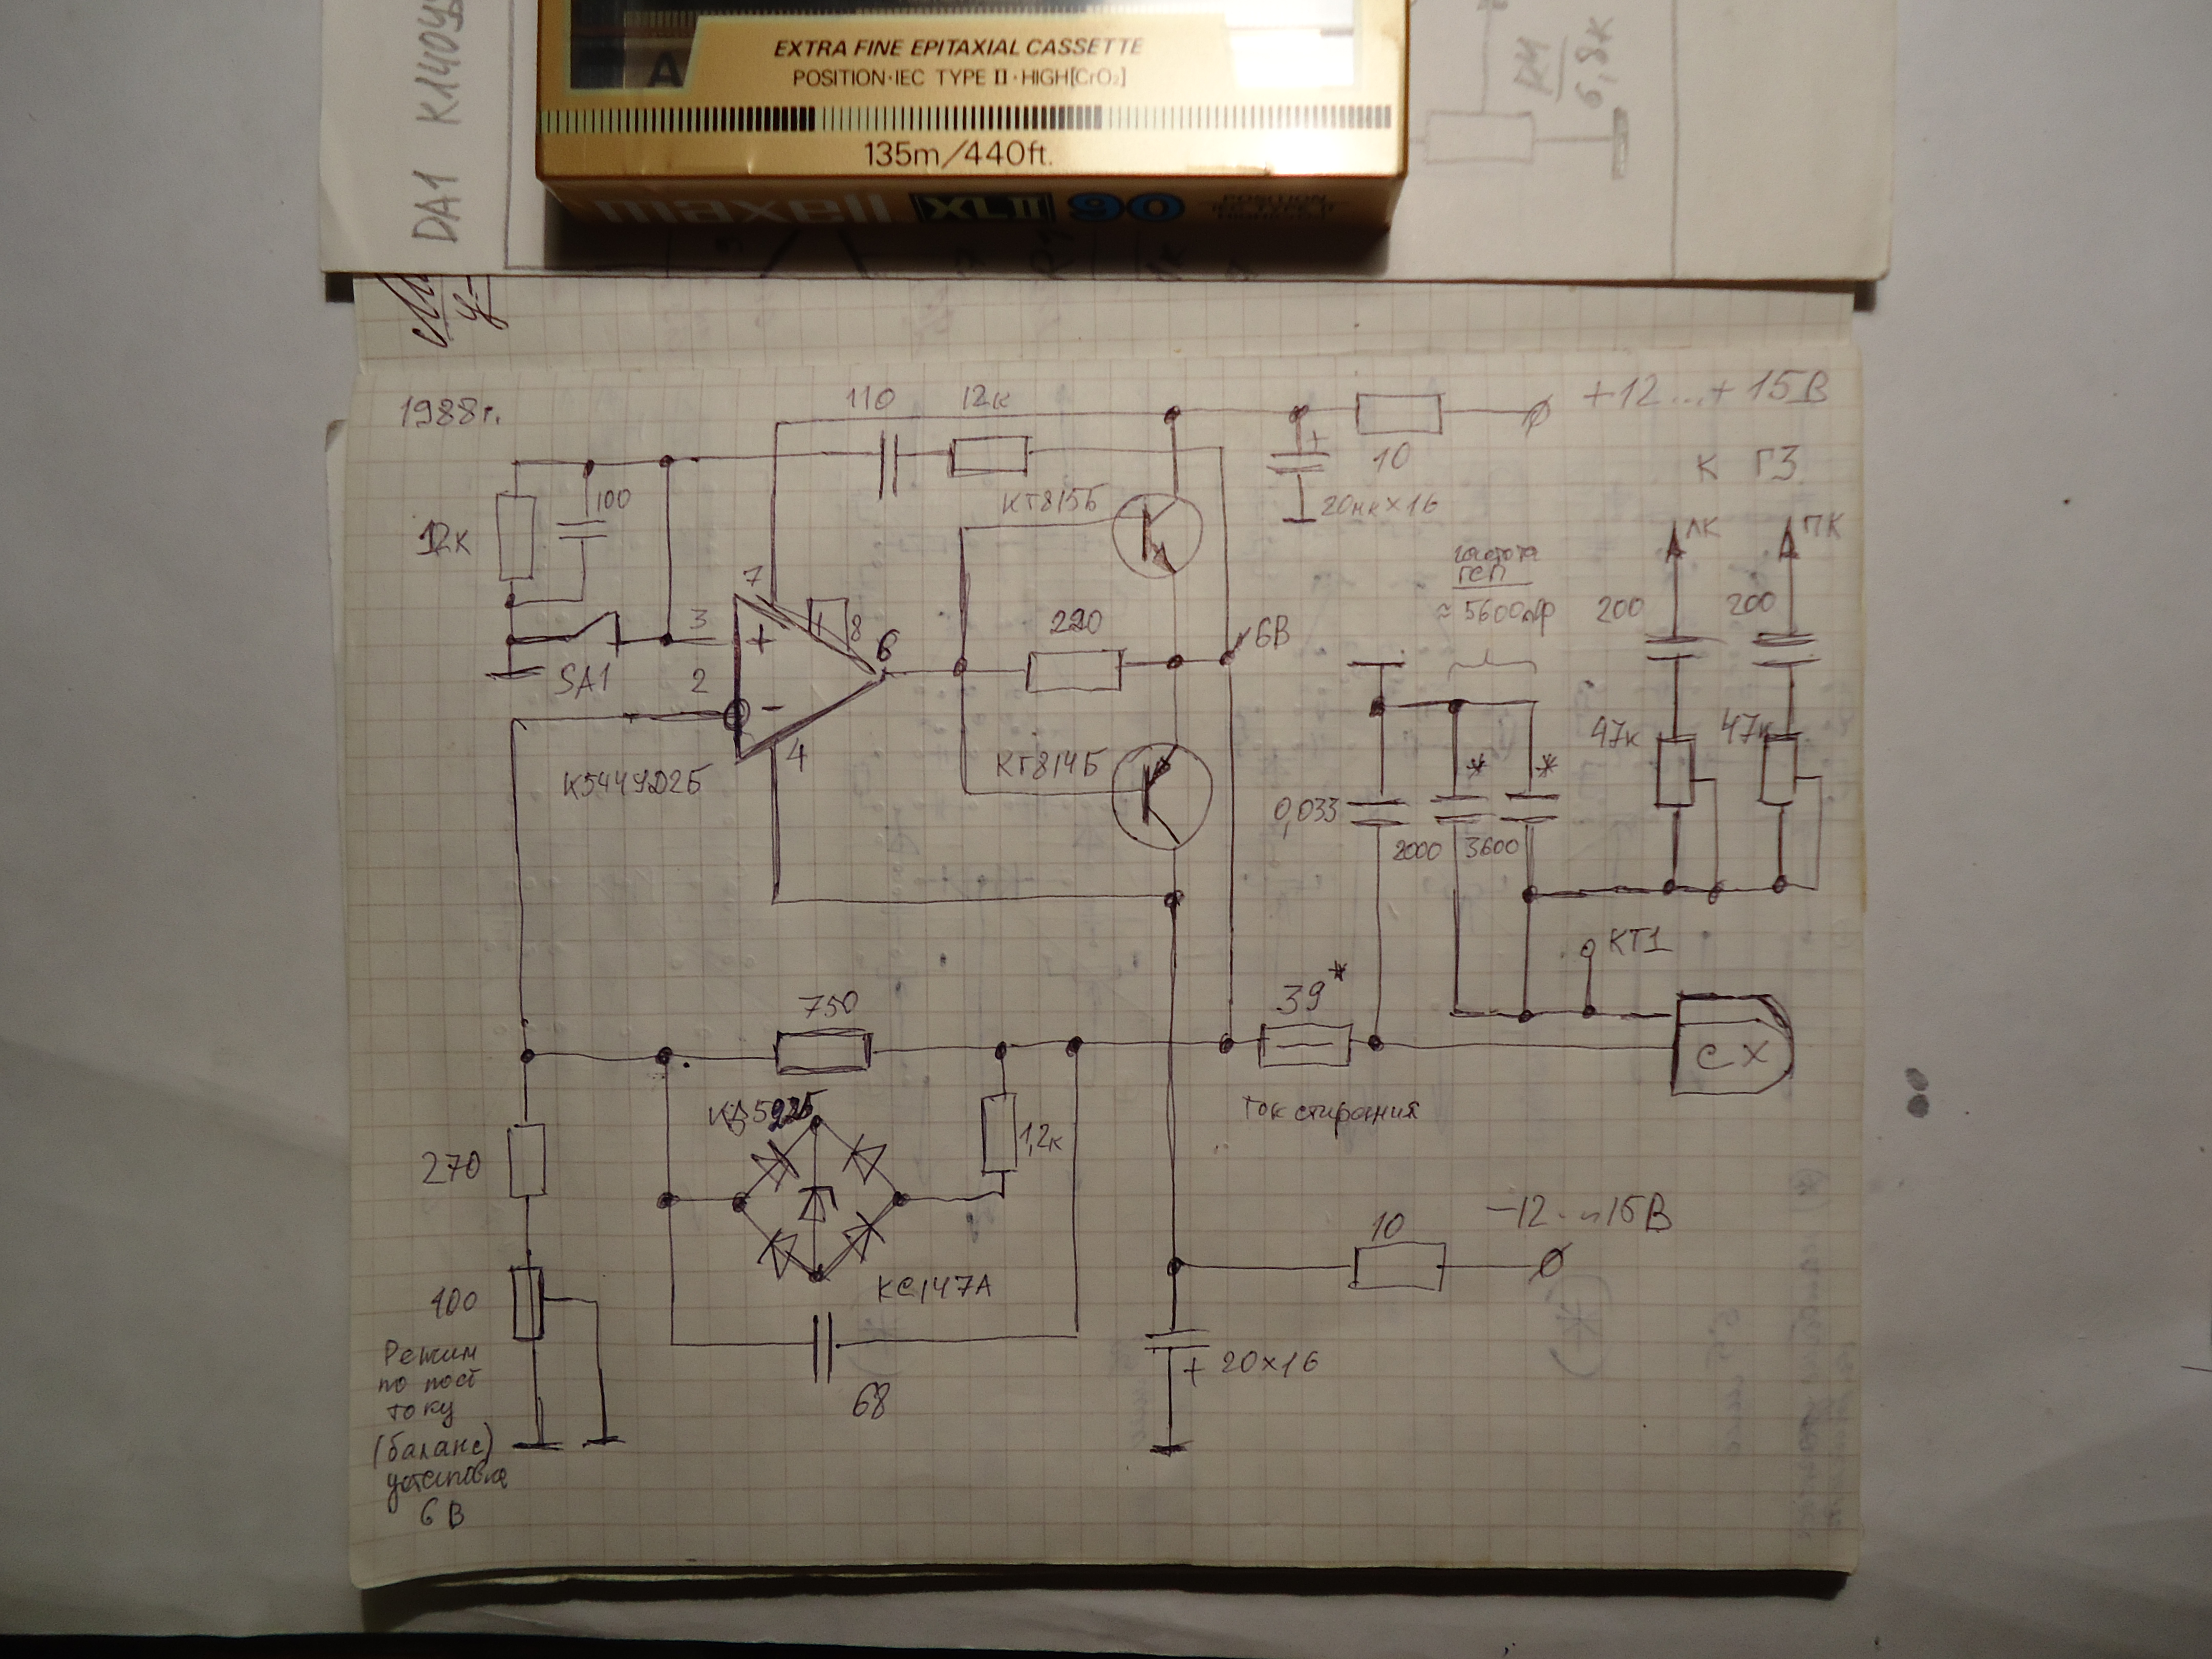 DA1 К140У
EXTRA FINE EPITAXIAL CASSETTE
A
POSITION·IEC TYPE II·HIGH[CrO₂]
135m/440ft.
maxell XLII 90
R4
6,8к
1988г.
110
12к
+12...+15В
10
20мк×16
К ГЗ
ЛК
ПК
12к
100
КТ815Б
частота
ГСП
≈5600пф
200
200
7
1
8
3
+
2
-
6
4
SA1
220
6В
К544УД2Б
КТ814Б
47к
47к
*
*
0,033
2000
3600
КТ1
750
39*
СХ
Ток стирания
КД522Б
1,2к
270
КС147А
10
-12...15В
100
68
+ 20×16
Режим
по пост
току
(баланс)
установка
6 В